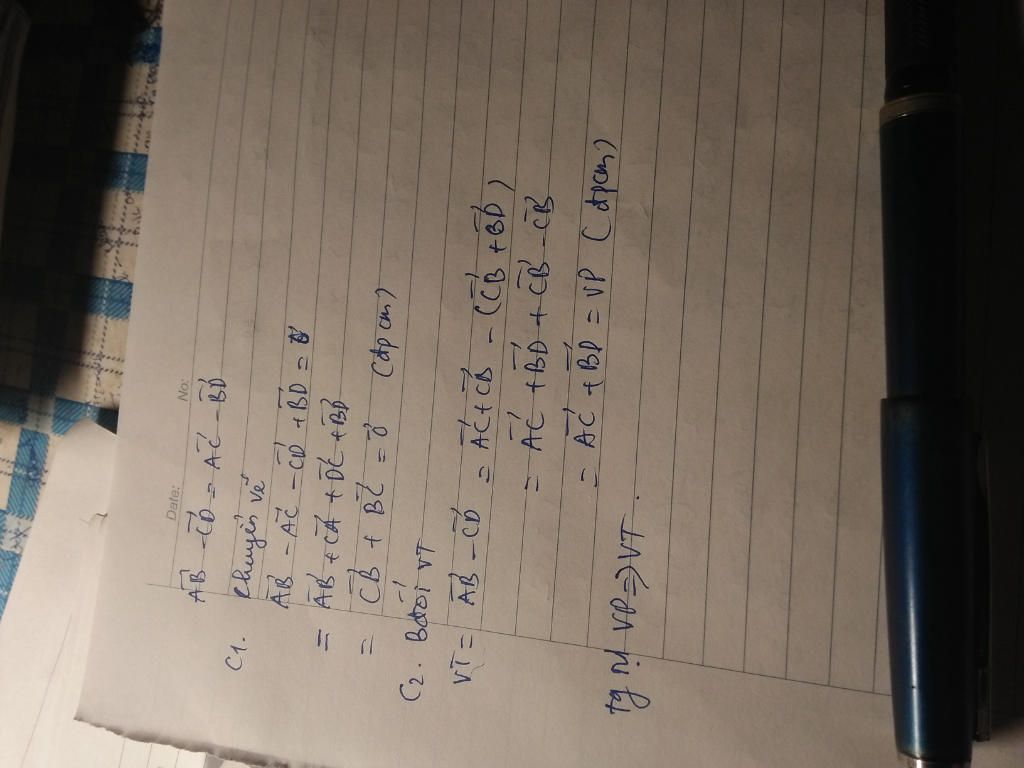 Date: No:
AB⃗ - CD⃗ = AC⃗ - BD⃗
C1. chuyển vế
AB⃗ - AC⃗ - CD⃗ + BD⃗ = 0⃗
= AB⃗ + CA⃗ + DC⃗ + BD⃗
= CB⃗ + BC⃗ = 0⃗ (đpcm)
C2. Bđổi VT
VT = AB⃗ - CD⃗ = AC⃗ + CB⃗ - (CB⃗ + BD⃗)
= AC⃗ + BD⃗ + CB⃗ - CB⃗
= AC⃗ + BD⃗ = VP (đpcm)
tg tự VP ⇒ VT.